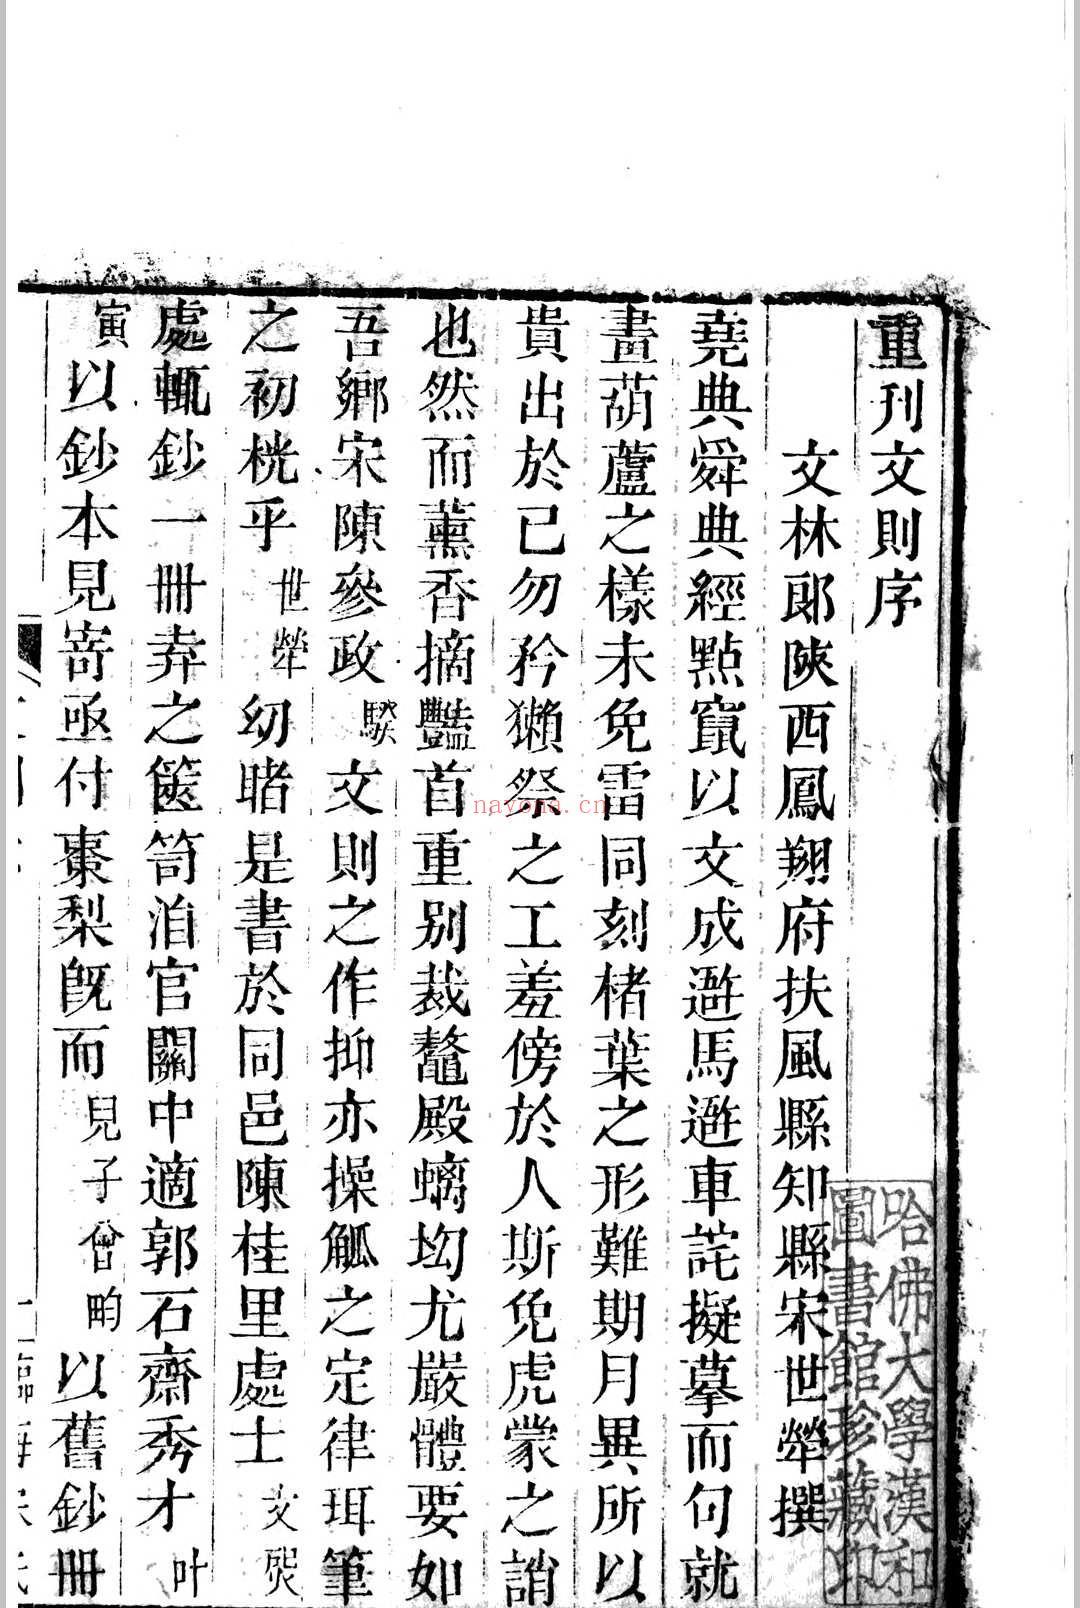 重刊文則序
文林郎陝西鳳翔府扶風縣知縣宋世犖撰
堯典舜典經點竄以文成遊馬遊車詫擬摹而句就
畫葫蘆之樣未免雷同刻楮葉之形難期月異所以
貴出於已勿矜獺祭之工羞傍於人斯免虎蒙之誚
也然而薰香摘豔首重別裁鼇殿螭坳尤嚴體要如
吾鄉宋陳參政騤文則之作抑亦操觚之定律珥筆
之初桄乎世犖幼睹是書於同邑陳桂里處士文煚
處輒鈔一冊弆之篋笥洎官關中適郭石齋秀才叶
寅以鈔本見寄亟付棗梨旣而兒子曾畇以舊鈔冊
臨海宋氏
哈佛大學漢和
圖書館珍藏印
nayona.cn